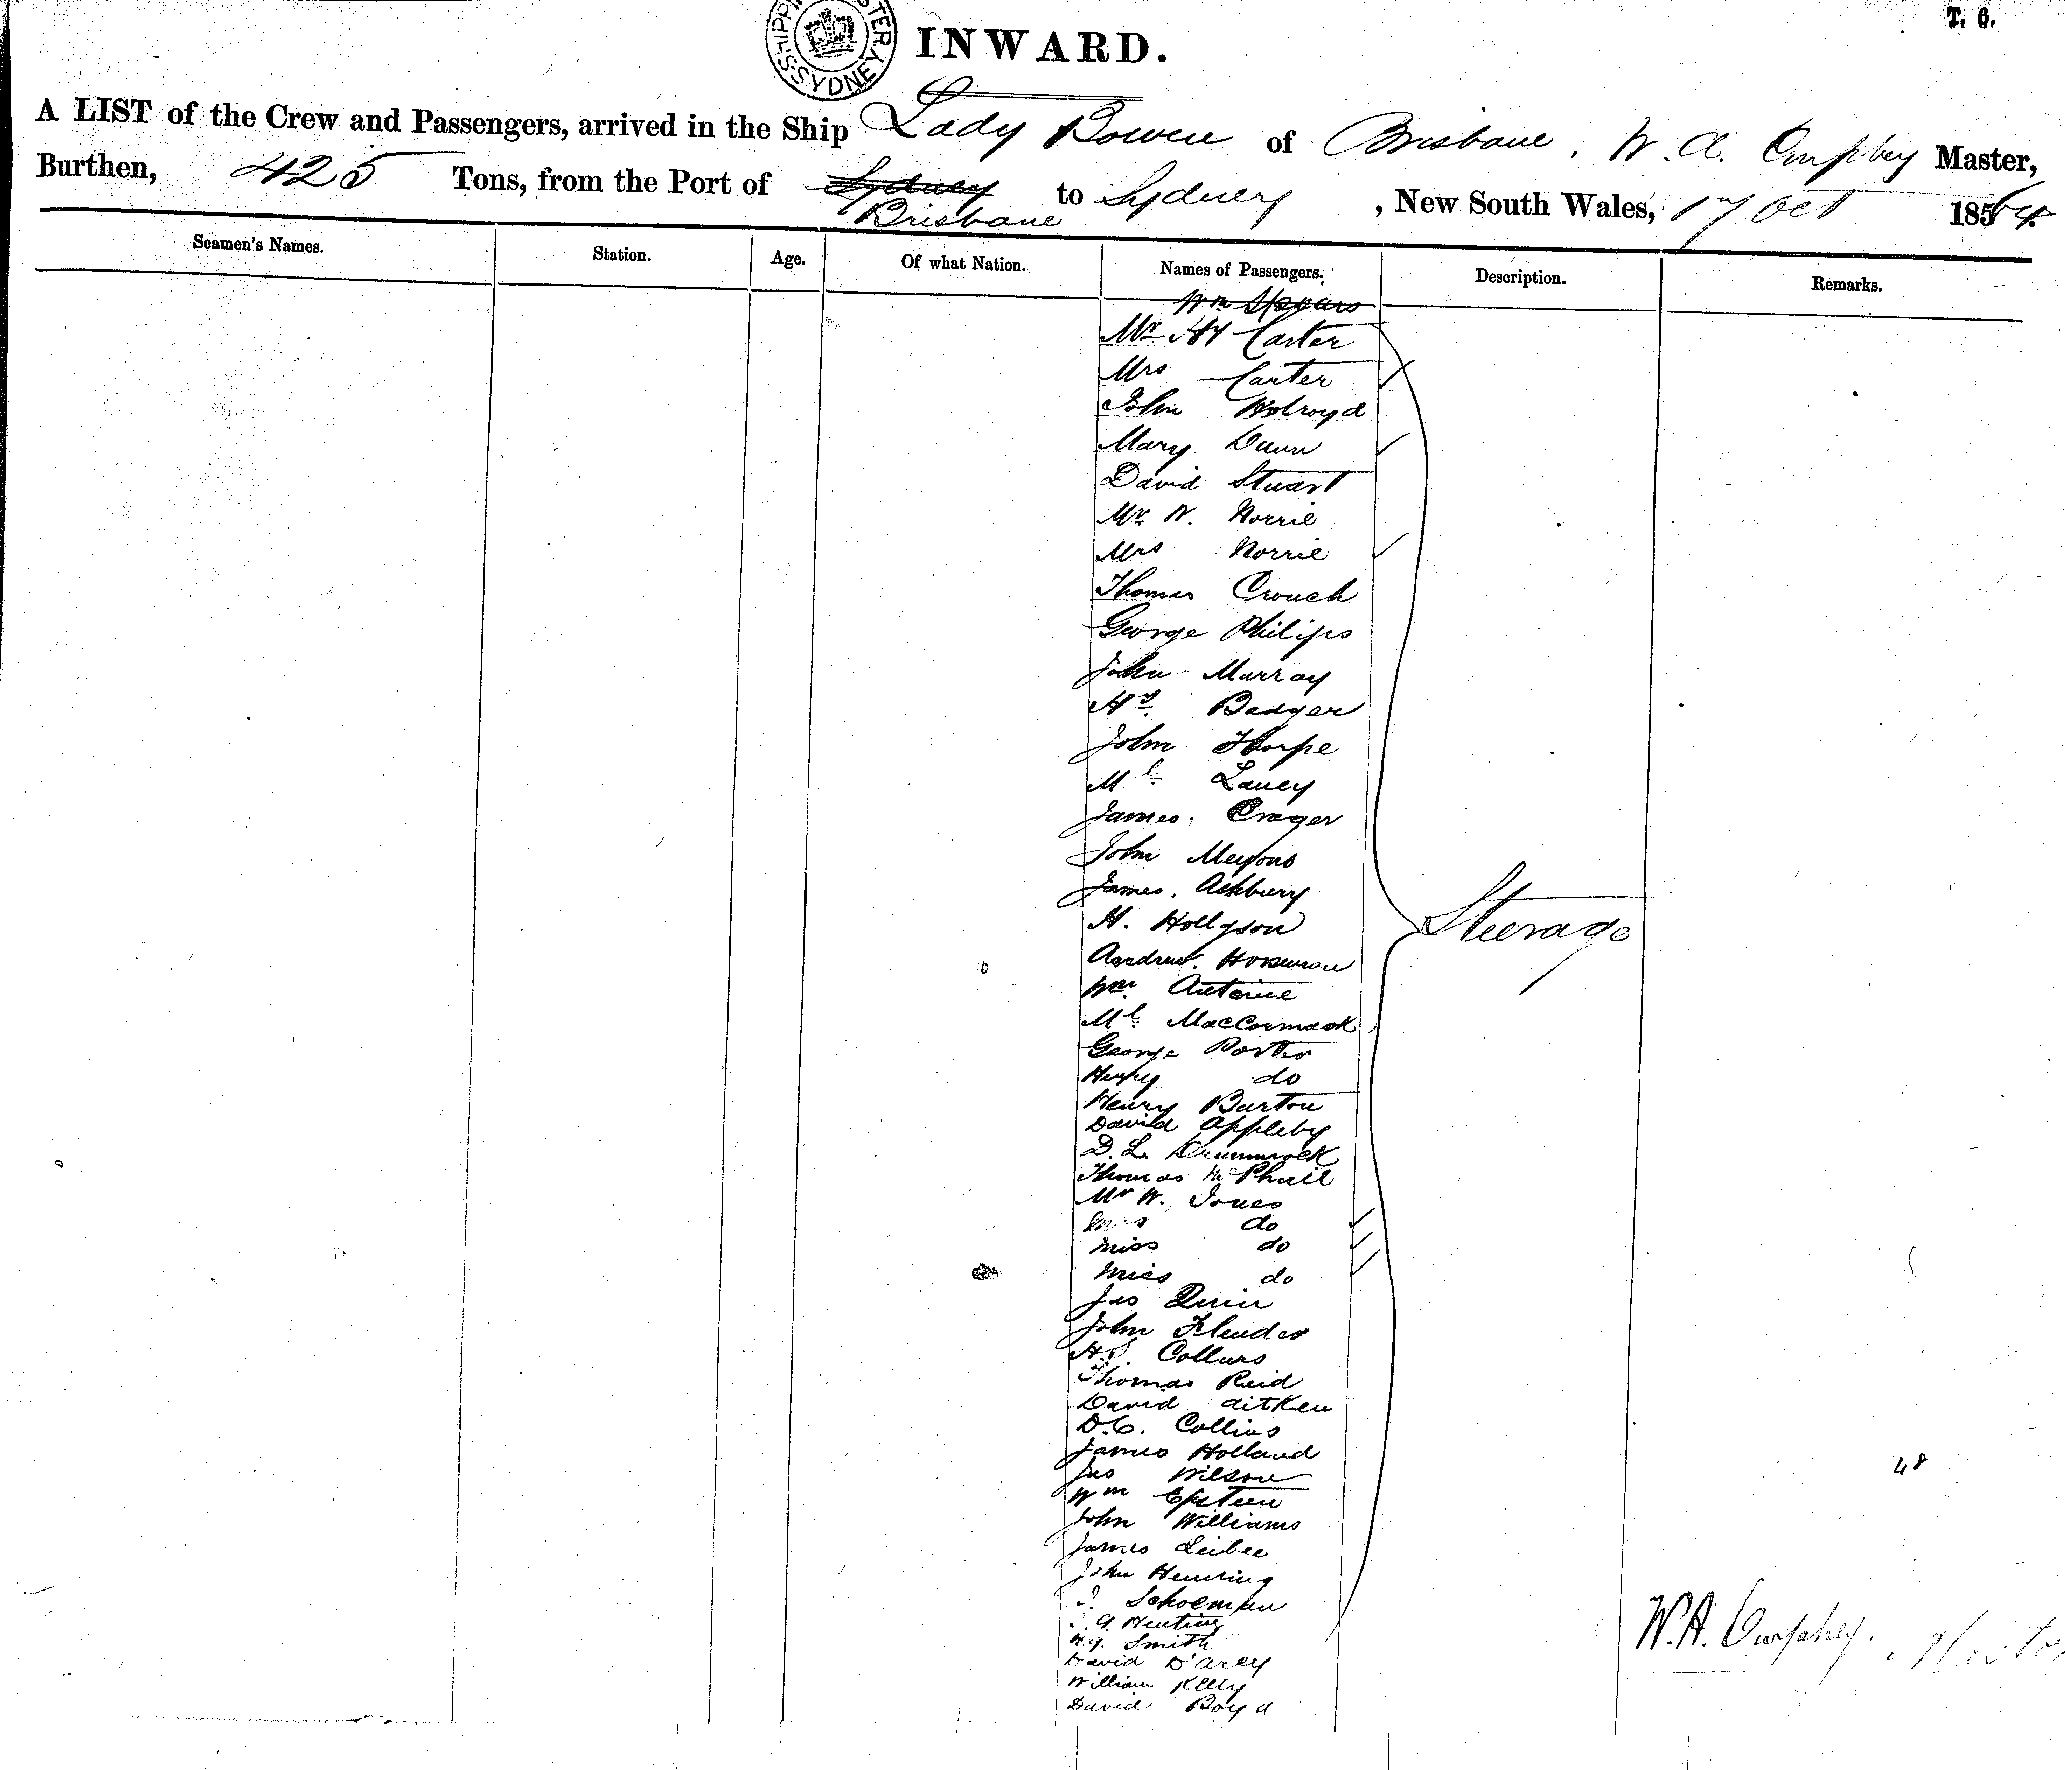 T. 6.
SHIPPING MASTER SYDNEY
INWARD.
A LIST of the Crew and Passengers, arrived in the Ship Lady Bowen of Brisbane, W. A. Master,
Burthen, 425 Tons, from the Port of Sydney to Sydney, New South Wales, 17 Oct 1864
Brisbane
Seamen's Names. Station. Age. Of what Nation. Names of Passengers. Description. Remarks.
Wm Spears
Mr Hy Carter
Mrs Carter
John Holroyd
Mary Dunn
David Stuart
Mr W. Norrie
Mrs Norrie
Thomas Crouch
George Philips
John Murray
Hy. Badger
John Thorpe
Ml. Laney
James. Crager
John Meyons
James. Ashbury
H. Hollyson
Steerage
Andrew.
Wm. Antoine
Ml. MacCormack
George Porter
Henry do
Henry Burton
David Appleby
D. L.
Thomas McPhail
Mr W. Jones
Mrs do
Miss do
Miss do
Jas Quin
John
Collurs
Thomas Reid
David Aitken
D.C. Collins
James Holland
48
Jas Wilson
Wm Epsteen
John Williams
James Leibee
John Henning
J. Schoeman
Smith
David D'Arcy
W. A.
William Kelly
David Boyd